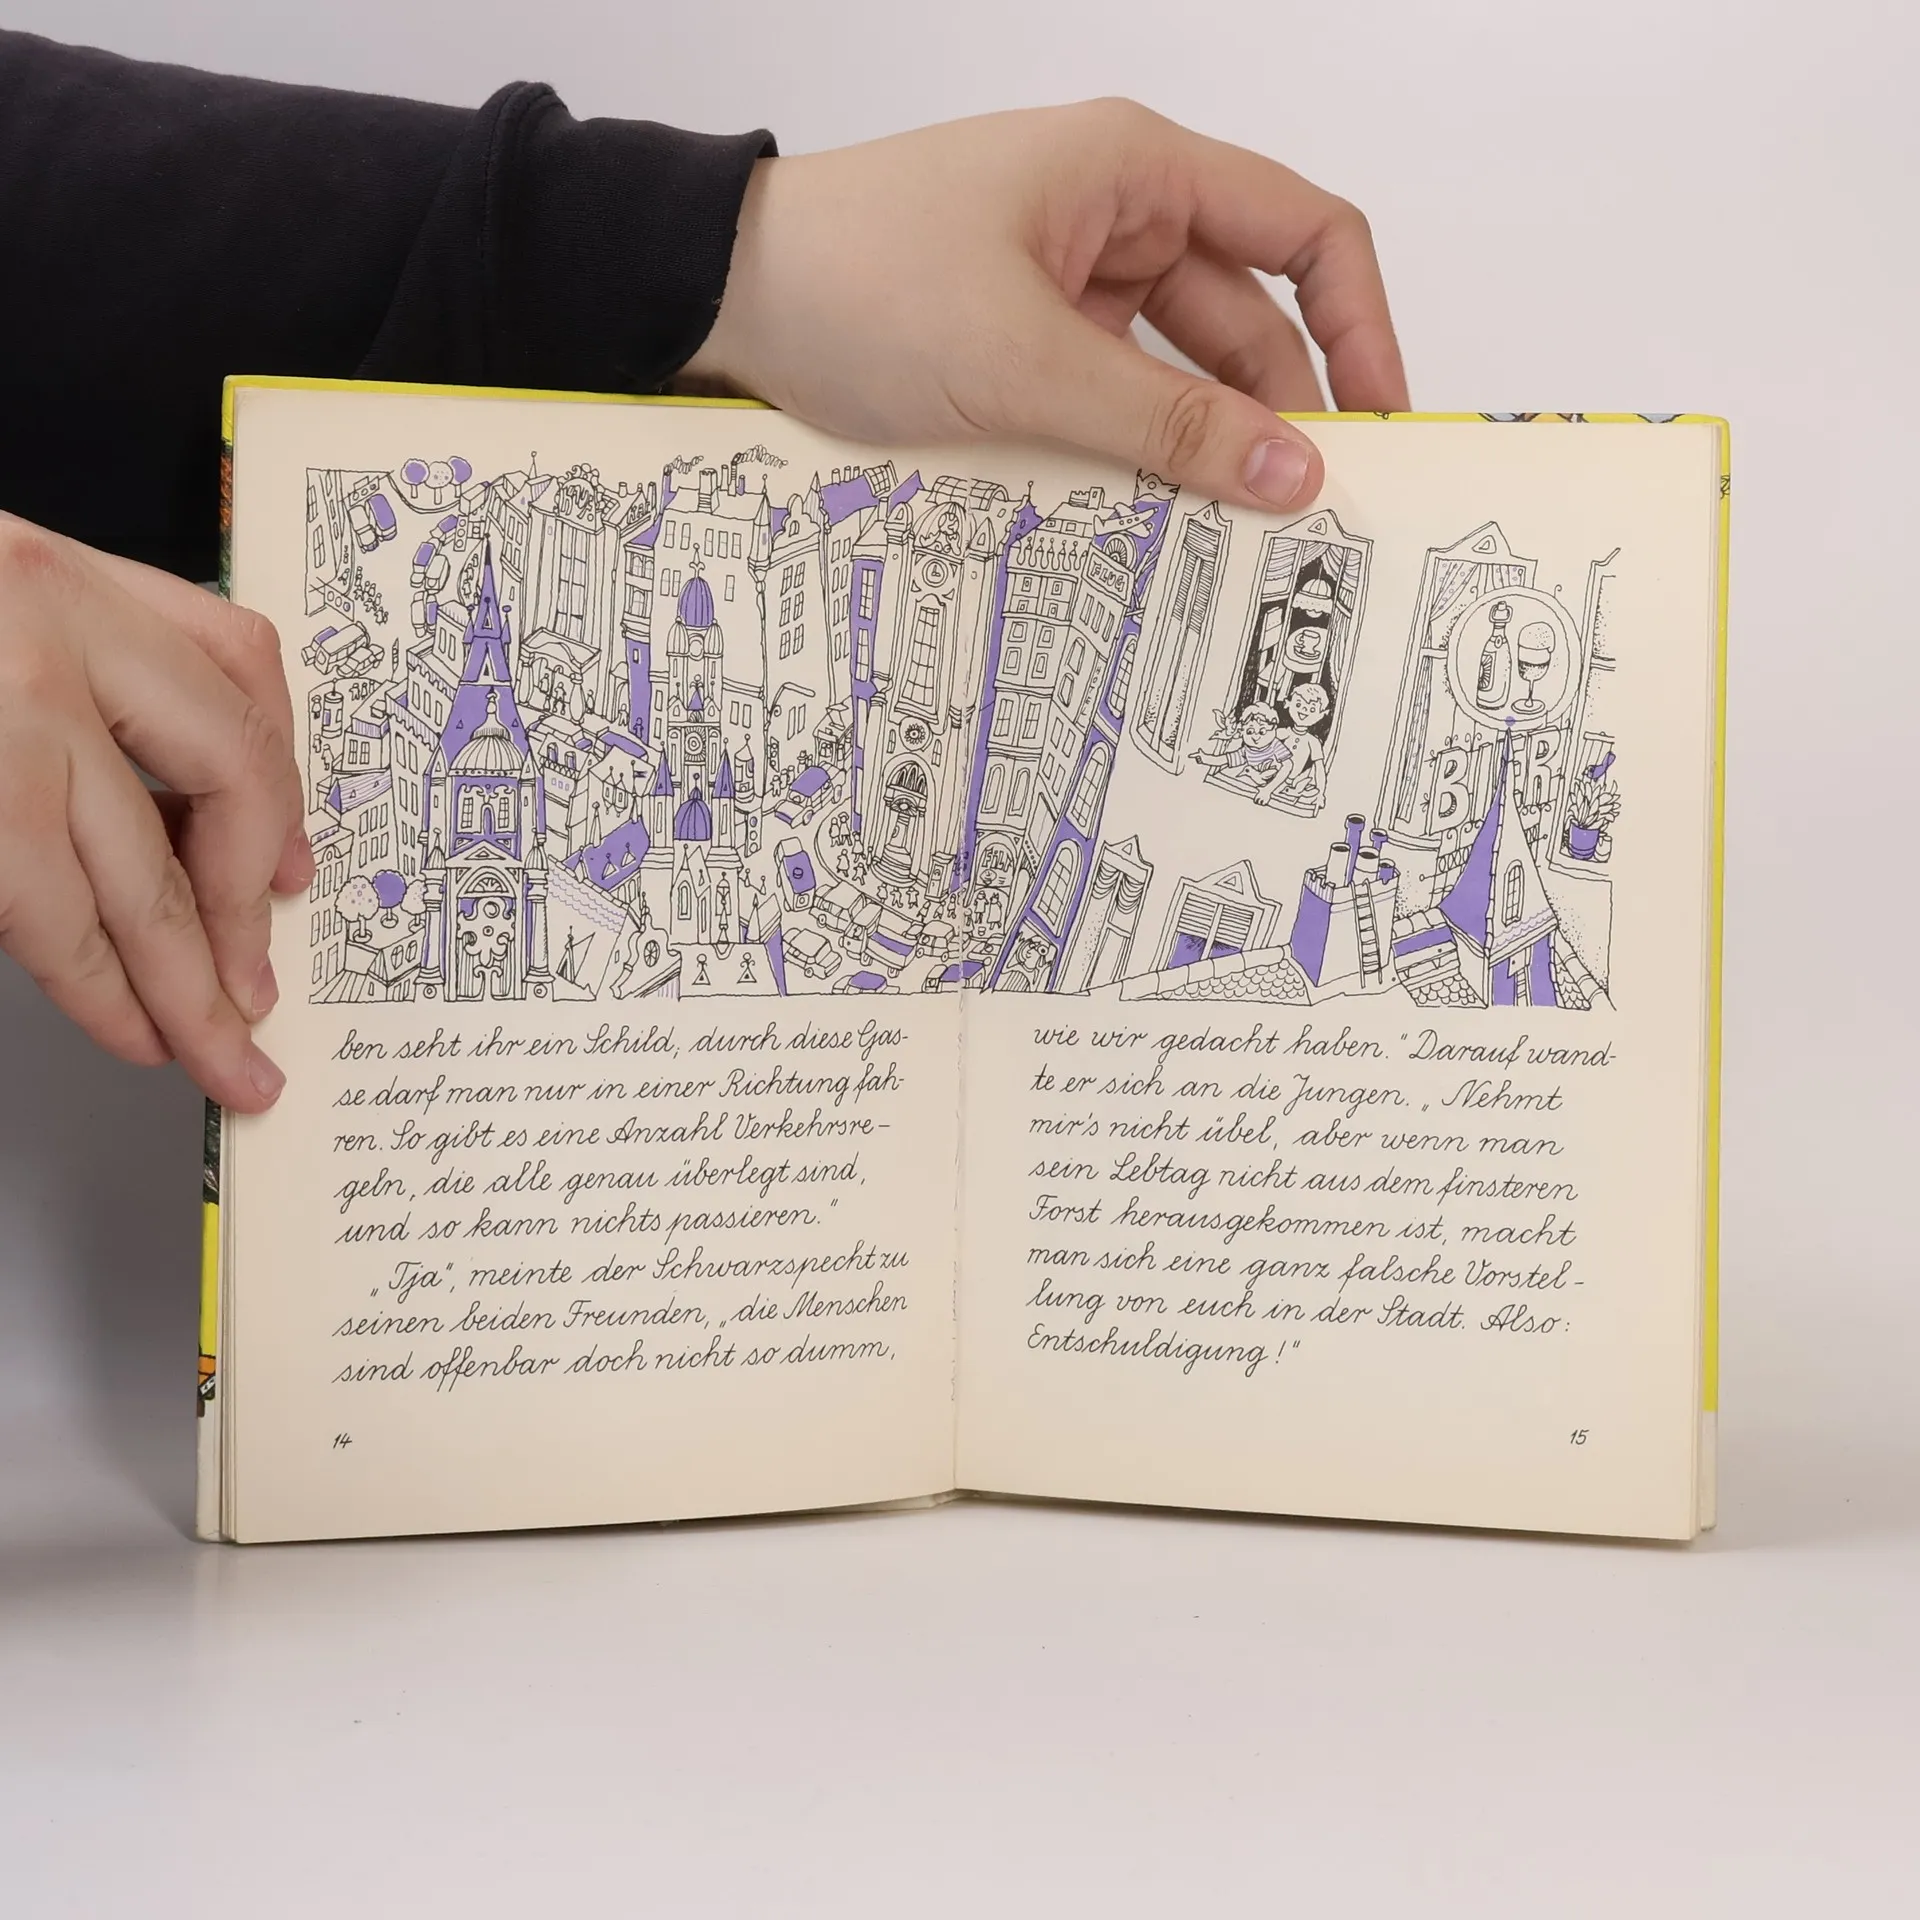 FLUG
HOTEL
FILM
BIER
ben seht ihr ein Schild; durch diese Gas-
se darf man nur in einer Richtung fah-
ren. So gibt es eine Anzahl Verkehrsre-
geln, die alle genau überlegt sind,
und so kann nichts passieren."
„Tja", meinte der Schwarzspecht zu
seinen beiden Freunden, „die Menschen
sind offenbar doch nicht so dumm,
14
wie wir gedacht haben." Darauf wand-
te er sich an die Jungen. „Nehmt
mir's nicht übel, aber wenn man
sein Lebtag nicht aus dem finsteren
Forst herausgekommen ist, macht
man sich eine ganz falsche Vorstel-
lung von euch in der Stadt. Also:
Entschuldigung!"
15